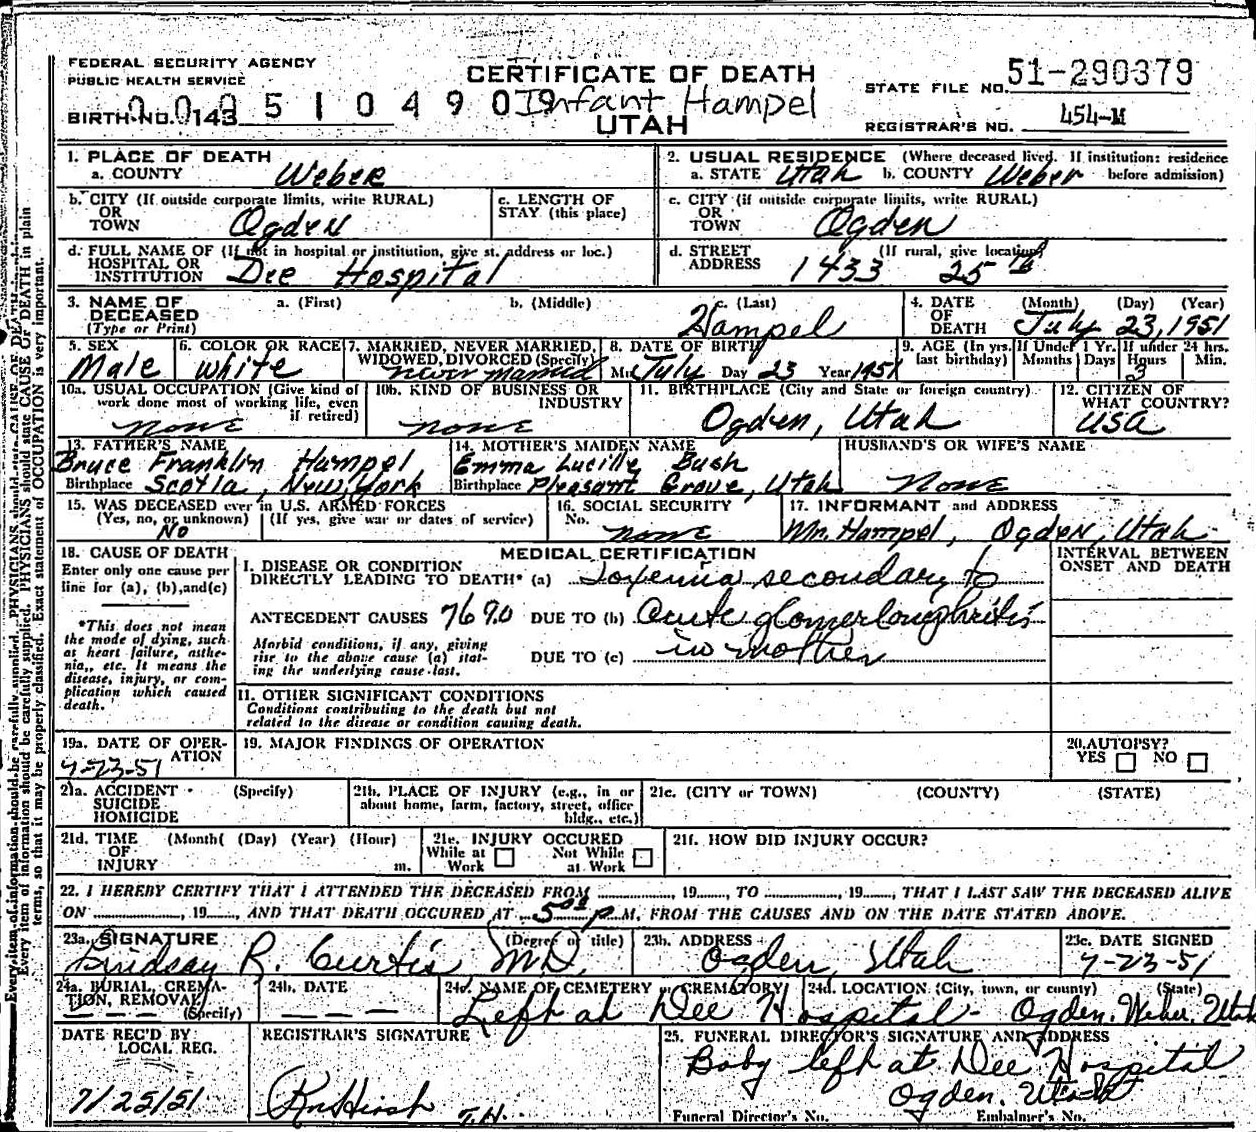 FEDERAL SECURITY AGENCY
PUBLIC HEALTH SERVICE
CERTIFICATE OF DEATH
STATE FILE NO. 51-290379
BIRTH NO. 0143 5 1 0 4 9 0 Infant Hampel
UTAH
REGISTRAR'S NO. 454-M
1. PLACE OF DEATH
a. COUNTY Weber
2. USUAL RESIDENCE (Where deceased lived. If institution: residence before admission)
a. STATE Utah b. COUNTY Weber
b. CITY (If outside corporate limits, write RURAL) OR TOWN Ogden
c. LENGTH OF STAY (this place)
c. CITY (if outside corporate limits, write RURAL) OR TOWN Ogden
d. FULL NAME OF (If not in hospital or institution, give st. address or loc.)
HOSPITAL OR INSTITUTION Dee Hospital
d. STREET ADDRESS (If rural, give location) 1433 25th
3. NAME OF DECEASED (Type or Print)
a. (First) b. (Middle) c. (Last) Hampel
4. DATE OF DEATH (Month) (Day) (Year) July 23, 1951
5. SEX Male
6. COLOR OR RACE White
7. MARRIED, NEVER MARRIED, WIDOWED, DIVORCED (Specify) never married
8. DATE OF BIRTH Mo. July Day 23 Year 1951
9. AGE (In yrs. last birthday) If Under 1 Yr. Months Days If under 24 hrs. Hours 3 Min.
10a. USUAL OCCUPATION (Give kind of work done most of working life, even if retired) none
10b. KIND OF BUSINESS OR INDUSTRY none
11. BIRTHPLACE (City and State or foreign country) Ogden, Utah
12. CITIZEN OF WHAT COUNTRY? USA
13. FATHER'S NAME
Bruce Franklin Hampel,
Birthplace Scotia, New York
14. MOTHER'S MAIDEN NAME
Emma Lucille Bush
Birthplace Pleasant Grove, Utah
HUSBAND'S OR WIFE'S NAME
None
15. WAS DECEASED ever in U.S. ARMED FORCES
(Yes, no, or unknown) No (If yes, give war or dates of service)
16. SOCIAL SECURITY No. none
17. INFORMANT and ADDRESS
Mr. Hampel, Ogden, Utah
18. CAUSE OF DEATH
Enter only one cause per line for (a), (b), and (c)
*This does not mean the mode of dying, such as heart failure, asthenia, etc. It means the disease, injury, or complication which caused death.
MEDICAL CERTIFICATION
INTERVAL BETWEEN ONSET AND DEATH
I. DISEASE OR CONDITION
DIRECTLY LEADING TO DEATH* (a) Toxemia secondary to
ANTECEDENT CAUSES 7690 DUE TO (b) Acute glomerlonephritis
Morbid conditions, if any, giving rise to the above cause (a) stating the underlying cause last.
DUE TO (c) in mother
11. OTHER SIGNIFICANT CONDITIONS
Conditions contributing to the death but not related to the disease or condition causing death.
19a. DATE OF OPERATION
7-23-51
19. MAJOR FINDINGS OF OPERATION
20. AUTOPSY?
YES NO
21a. ACCIDENT SUICIDE HOMICIDE (Specify)
21b. PLACE OF INJURY (e.g., in or about home, farm, factory, street, office bldg., etc.)
21c. (CITY or TOWN) (COUNTY) (STATE)
21d. TIME OF INJURY (Month( (Day) (Year) (Hour) m.
21e. INJURY OCCURED
While at Work Not While at Work
21f. HOW DID INJURY OCCUR?
22. I HEREBY CERTIFY THAT I ATTENDED THE DECEASED FROM , 19 , TO , 19 , THAT I LAST SAW THE DECEASED ALIVE
ON , 19 , AND THAT DEATH OCCURED AT 5 00 P M, FROM THE CAUSES AND ON THE DATE STATED ABOVE.
23a. SIGNATURE (Degree or title)
Lindsay R. Curtis M.D.
23b. ADDRESS
Ogden, Utah
23c. DATE SIGNED
7-23-51
24a. BURIAL, CREMATION, REMOVAL (Specify)
24b. DATE
24c. NAME OF CEMETERY or CREMATORY
24d. LOCATION (City, town, or county) (State)
Left at Dee Hospital - Ogden, Weber, Utah
DATE REC'D BY LOCAL REG.
7/25/51
REGISTRAR'S SIGNATURE
T.H.
25. FUNERAL DIRECTOR'S SIGNATURE AND ADDRESS
Baby left at Dee Hospital
Ogden, Utah
Funeral Director's No. Embalmer's No.
Every item of information should be carefully supplied. PHYSICIANS should state CAUSE OF DEATH in plain
terms, so that it may be properly classified. Exact statement of OCCUPATION is very important.